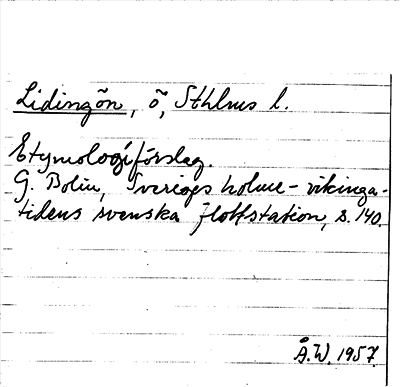 Lidingön, ö, Sthlms l.
Etymologiförslag.
G. Bolin, Sveriges holme - vikinga-
tidens svenska flottstation, s. 140.
Å.W. 1957